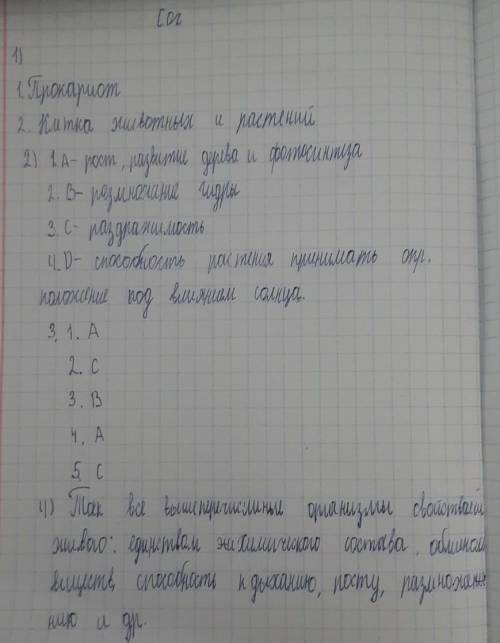 Сог
1)
1. Прокариот
2. Клтка животных и растений
2) 1. A- рост, развитие дерева и фотосинтеза
2. B- размножание гидры
3. C- раздражимость
4. D- способность растения принимать опр.
положение под влиянием солнца.
3. 1. A
2. C
3. B
4. A
5. C
4) Так все вышеперечислиные организмы
живого: единством состава, обменом
веществ, способность к дыханию, росту, размножа-
нию и др.